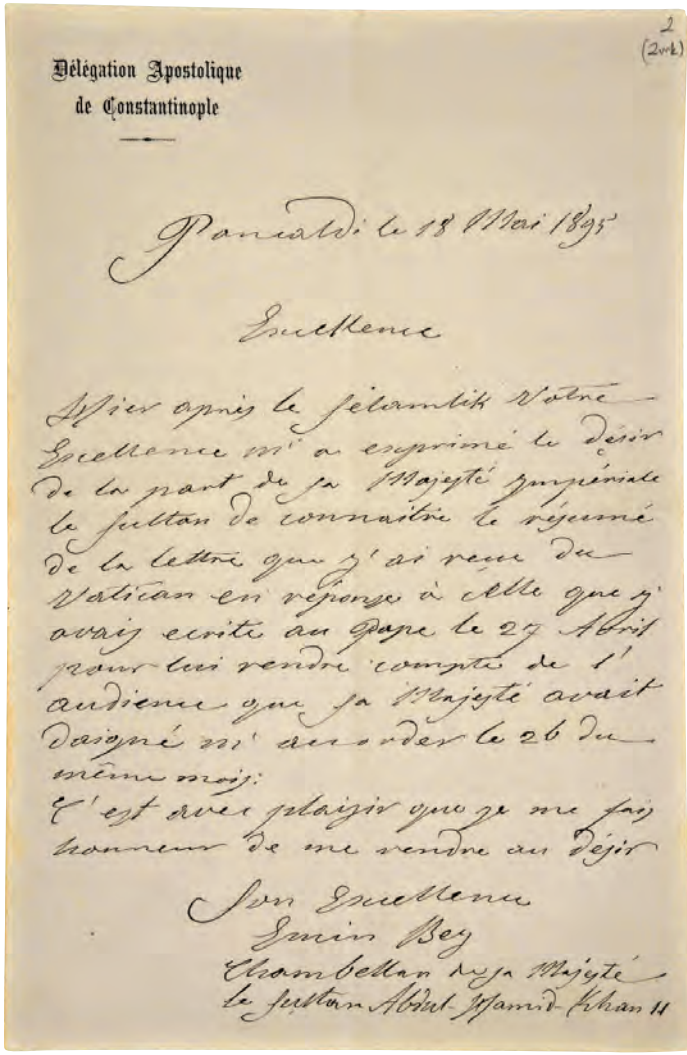 2
(2vrk)
Délégation Apostolique
de Constantinople
Pancaldi le 18 Mai 1895
Excellence
Hier après le Sélamlik Votre
Excellence m'a exprimé le désir
de la part de sa Majesté Impériale
le Sultan de connaitre le résumé
de la lettre que j'ai reçue du
Vatican en réponse à celle que j'
avais ecrite au Pape le 27 Avril
pour lui rendre compte de l'
audience que sa Majesté avait
daigné m'accorder le 26 du
même mois.
C'est avec plaisir que je me fais
honneur de me rendre au désir
Son Excellence
Emin Bey
Chambellan de sa Majesté
le Sultan Abdul-Hamid-Khan II